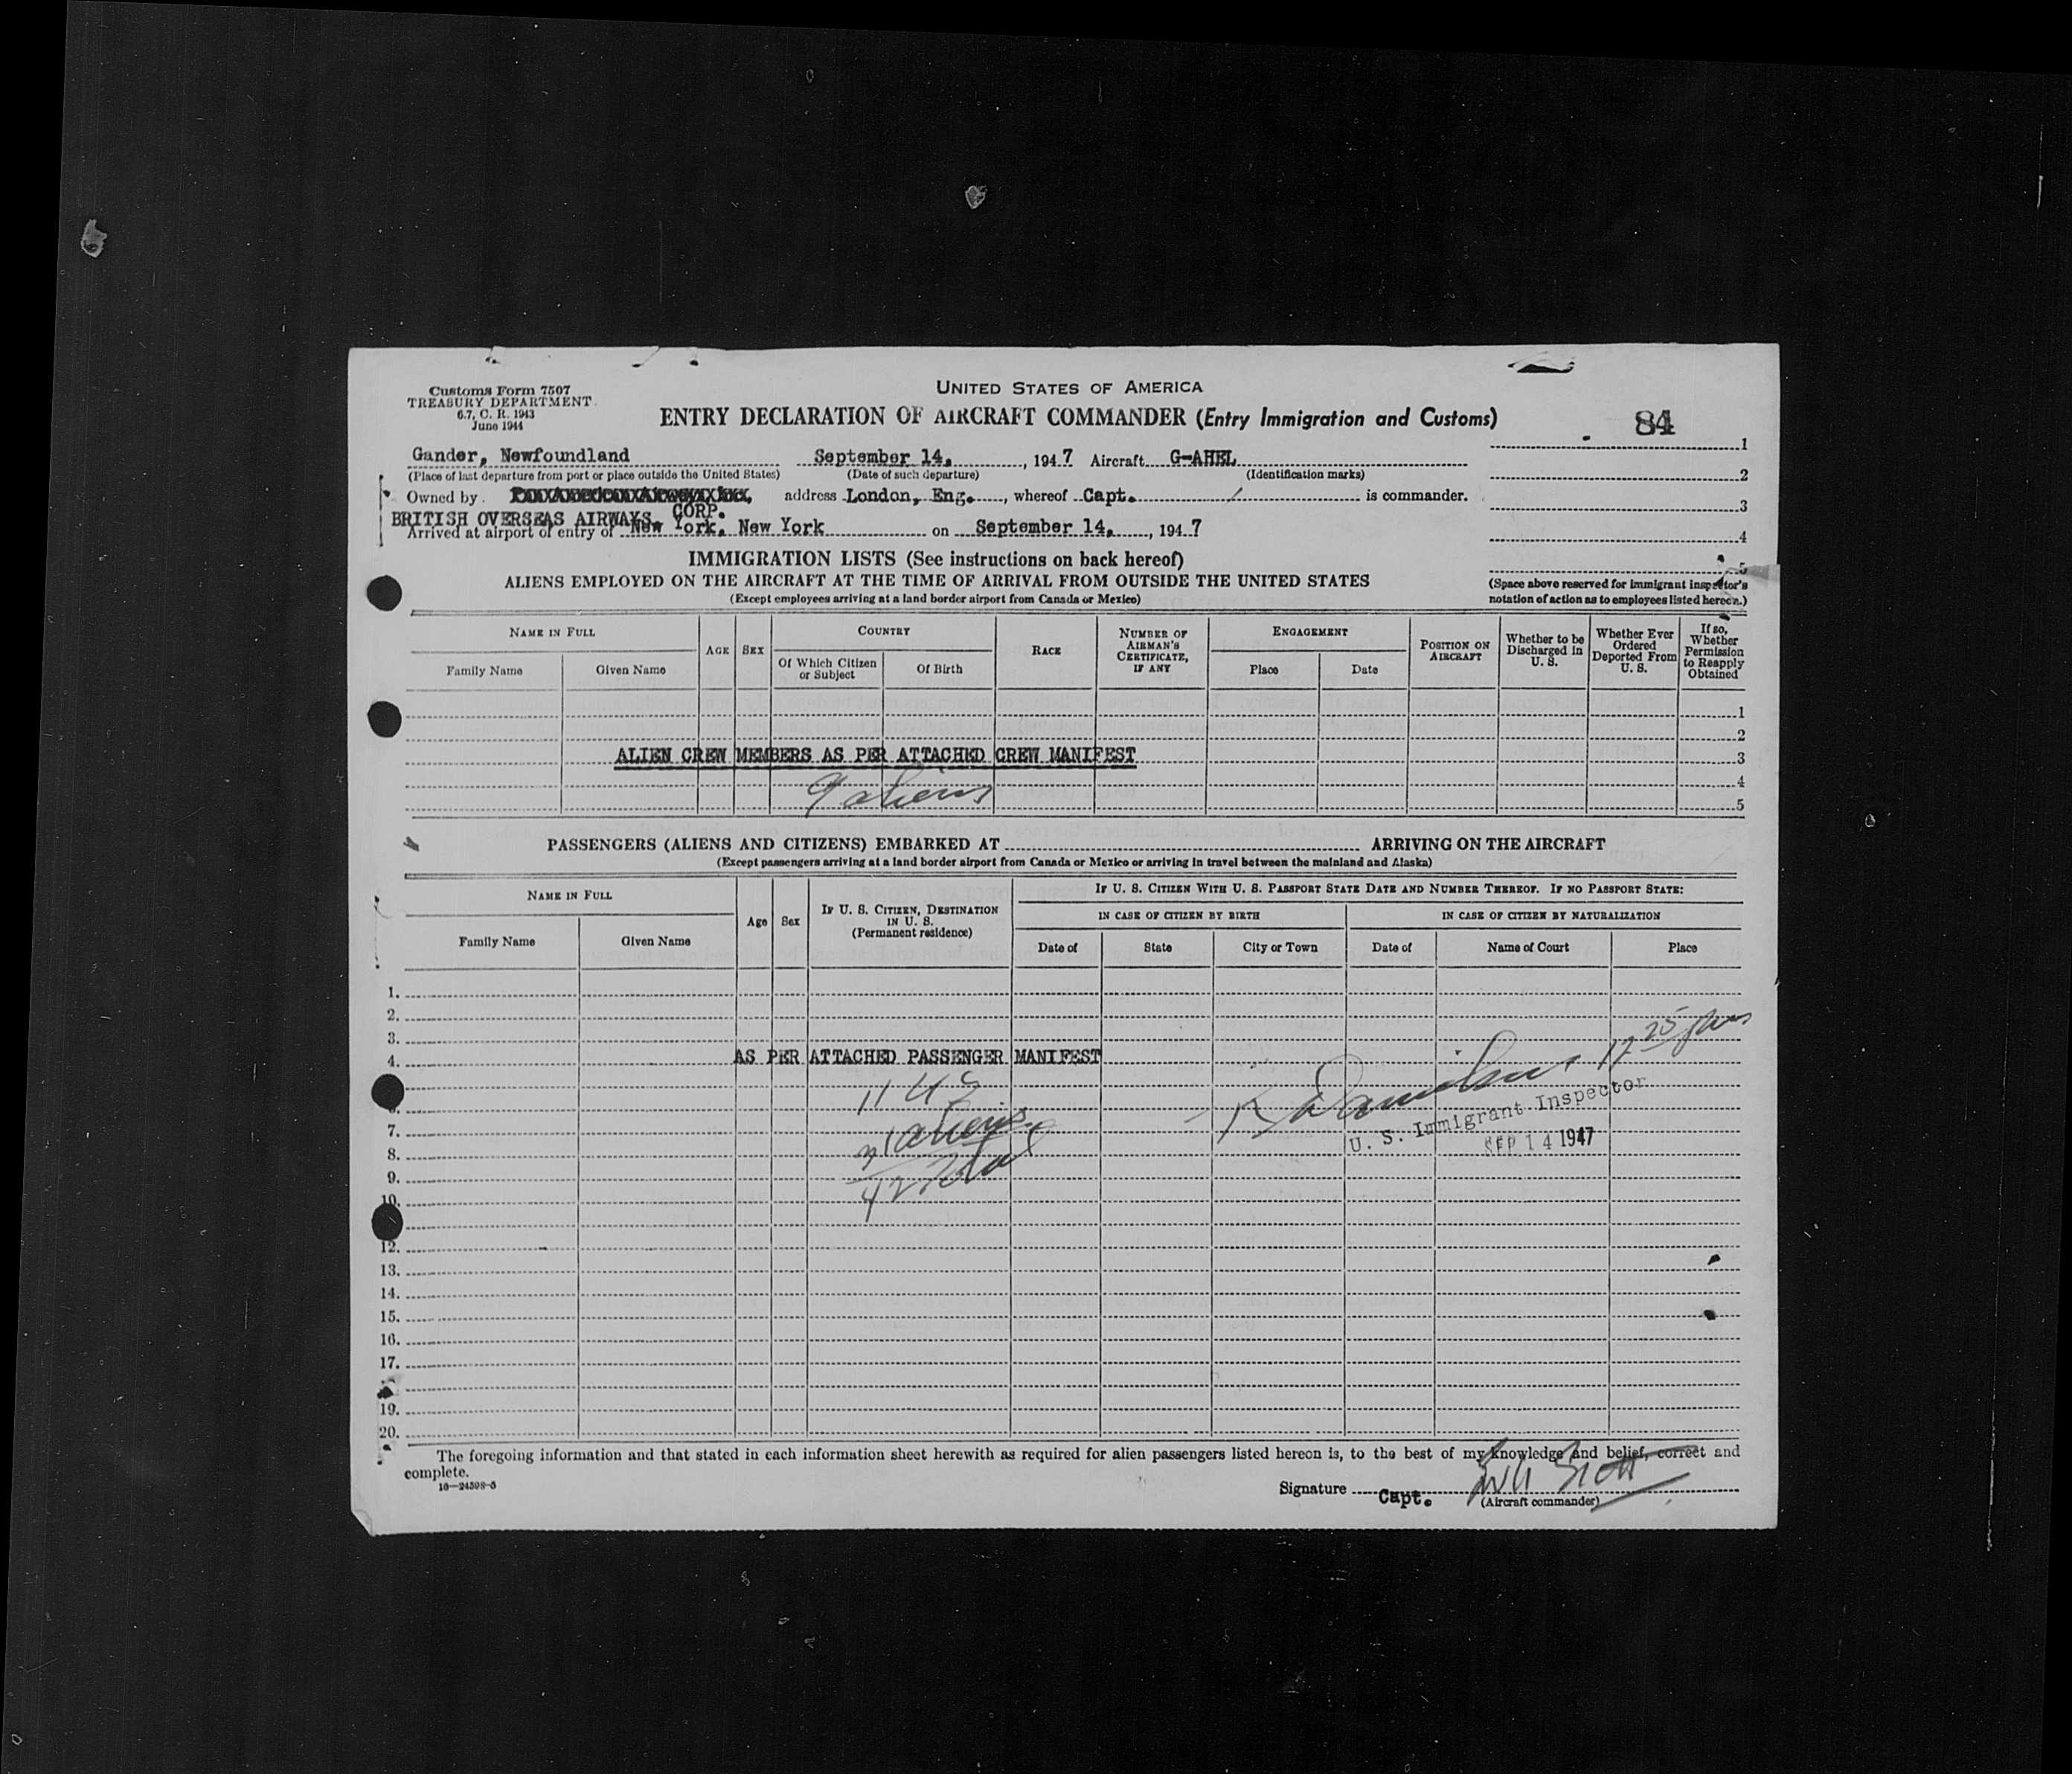 Customs Form 7507
TREASURY DEPARTMENT
6.7, C. R. 1943
June 1944
UNITED STATES OF AMERICA
ENTRY DECLARATION OF AIRCRAFT COMMANDER (Entry Immigration and Customs)
84
Gander, Newfoundland September 14, , 194 7 Aircraft G-AHEL
(Place of last departure from port or place outside the United States) (Date of such departure) (Identification marks)
Owned by address London, Eng. , whereof Capt. is commander.
BRITISH OVERSEAS AIRWAYS CORP.
Arrived at airport of entry of New York, New York on September 14, , 194 7
1
2
3
4
5
(Space above reserved for immigrant inspector's
notation of action as to employees listed hereon.)
IMMIGRATION LISTS (See instructions on back hereof)
ALIENS EMPLOYED ON THE AIRCRAFT AT THE TIME OF ARRIVAL FROM OUTSIDE THE UNITED STATES
(Except employees arriving at a land border airport from Canada or Mexico)
NAME IN FULL
Family Name
Given Name
AGE
SEX
COUNTRY
Of Which Citizen
or Subject
Of Birth
RACE
NUMBER OF
AIRMAN'S
CERTIFICATE,
IF ANY
ENGAGEMENT
Place
Date
POSITION ON
AIRCRAFT
Whether to be
Discharged in
U. S.
Whether Ever
Ordered
Deported From
U. S.
If so,
Whether
Permission
to Reapply
Obtained
1
2
ALIEN CREW MEMBERS AS PER ATTACHED CREW MANIFEST 3
4
9 aliens 5
PASSENGERS (ALIENS AND CITIZENS) EMBARKED AT ARRIVING ON THE AIRCRAFT
(Except passengers arriving at a land border airport from Canada or Mexico or arriving in travel between the mainland and Alaska)
NAME IN FULL
Family Name
Given Name
Age
Sex
IF U. S. CITIZEN, DESTINATION
IN U. S.
(Permanent residence)
IF U. S. CITIZEN WITH U. S. PASSPORT STATE DATE AND NUMBER THEREOF. IF NO PASSPORT STATE:
IN CASE OF CITIZEN BY BIRTH
Date of
State
City or Town
IN CASE OF CITIZEN BY NATURALIZATION
Date of
Name of Court
Place
1.
2.
3.
4. AS PER ATTACHED PASSENGER MANIFEST
11 US
7. 31 aliens
8. 42 Total
9.
10.
12.
13.
14.
15.
16.
17.
19.
20.
U. S. Immigrant Inspector
SEP 14 1947
The foregoing information and that stated in each information sheet herewith as required for alien passengers listed hereon is, to the best of my knowledge and belief, correct and
complete.
16—24598-3
Signature Capt.
(Aircraft commander)